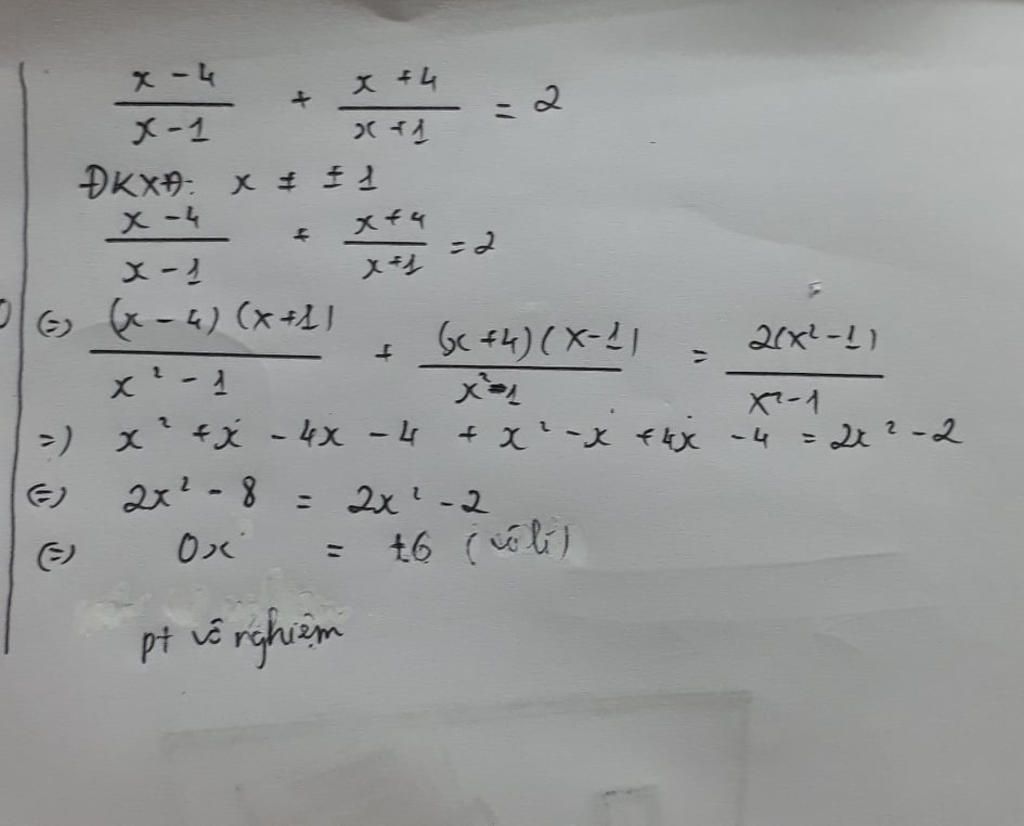 x - 4 / x - 1 + x + 4 / x + 1 = 2
ĐKXĐ: x ≠ ± 1
x - 4 / x - 1 + x + 4 / x + 1 = 2
(=) (x - 4)(x + 1) / x² - 1 + (x + 4)(x - 1) / x² - 1 = 2(x² - 1) / x² - 1
=) x² + x - 4x - 4 + x² - x + 4x - 4 = 2x² - 2
(=) 2x² - 8 = 2x² - 2
(=) 0x = +6 (vô lí)
pt vô nghiệm